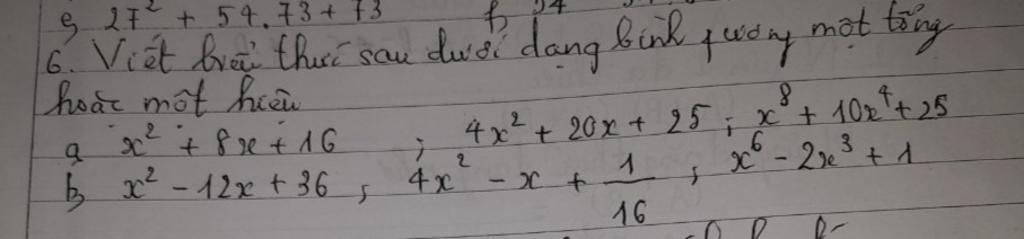 e, 27² + 54.73 + 73
6. Viết biểu thức sau dưới dạng bình phương một tổng
hoặc một hiệu
a x² + 8x + 16 ; 4x² + 20x + 25 ; x⁸ + 10x⁴ + 25
b x² - 12x + 36 ; 4x² - x + 1/16 ; x⁶ - 2x³ + 1